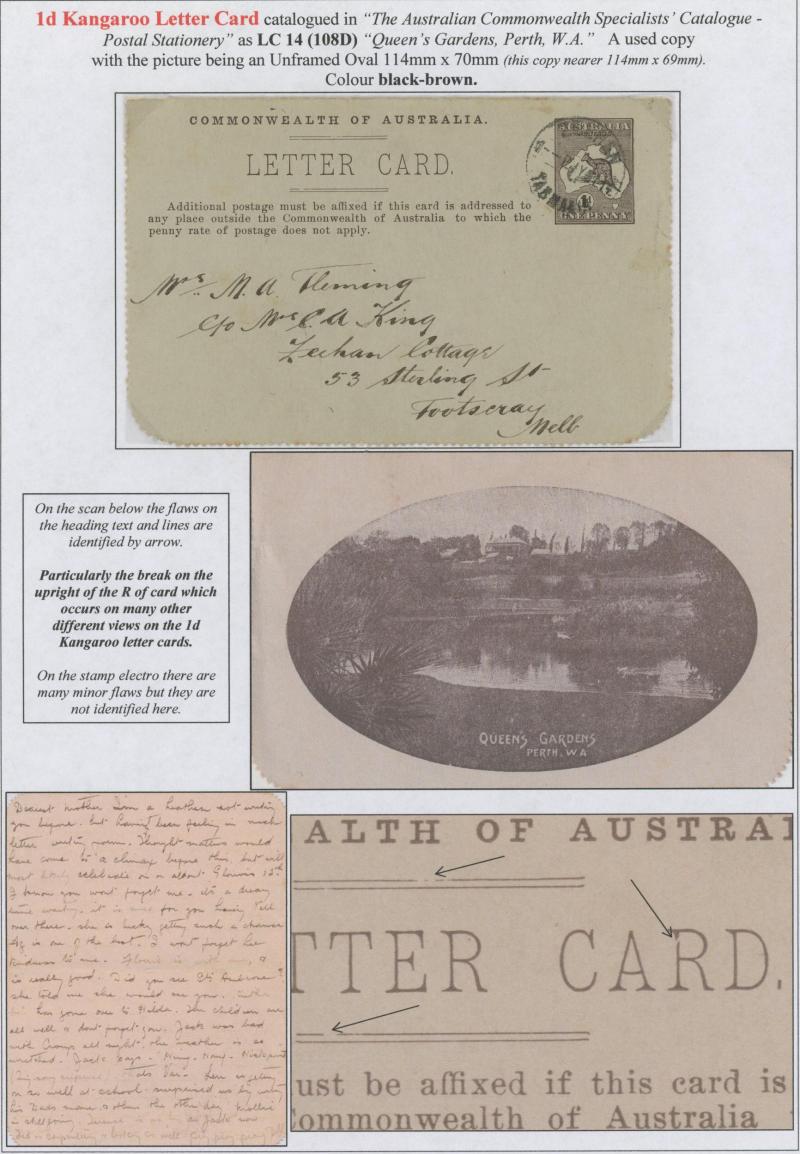 1d Kangaroo Letter Card catalogued in “The Australian Commonwealth Specialists’ Catalogue -
Postal Stationery” as LC 14 (108D) “Queen’s Gardens, Perth, W.A.” A used copy
with the picture being an Unframed Oval 114mm x 70mm (this copy nearer 114mm x 69mm).
Colour black-brown.
COMMONWEALTH OF AUSTRALIA.
LETTER CARD.
Additional postage must be affixed if this card is addressed to
any place outside the Commonwealth of Australia to which the
penny rate of postage does not apply.
AUSTRALIA
1d
ONE PENNY
TASMANIA
Mrs. M. A. Fleming
c/o Mrs C. A King
Zeehan Cottage
53 Sterling St
Footscray
Melb
On the scan below the flaws on
the heading text and lines are
identified by arrow.
Particularly the break on the
upright of the R of card which
occurs on many other
different views on the 1d
Kangaroo letter cards.
On the stamp electro there are
many minor flaws but they are
not identified here.
QUEEN'S GARDENS
PERTH, W.A
Dearest Mother I'm a heathen not writing
you before. but having been feeling in much
letter writing. Thought matters would
have come to a climax before this, but will
most likely celebrate on or about
I know you wont forget me. its a dreary
time waiting. it is for you having
over there. she is lucky getting such a chance
is one of the best. I wont forget her
kindness to me.
is really good. Did you see
she told me she would see you.
has gone over to. The children are
all well & dont forget you. Jack was bad
with Croup all night, the weather is so
wretched. Jack says
on so well at school. surprised us by writing
his Dads name the other day.
is still going. as Jack now
ALTH OF AUSTRAL
TTER CARD.
ust be affixed if this card is
Commonwealth of Australia